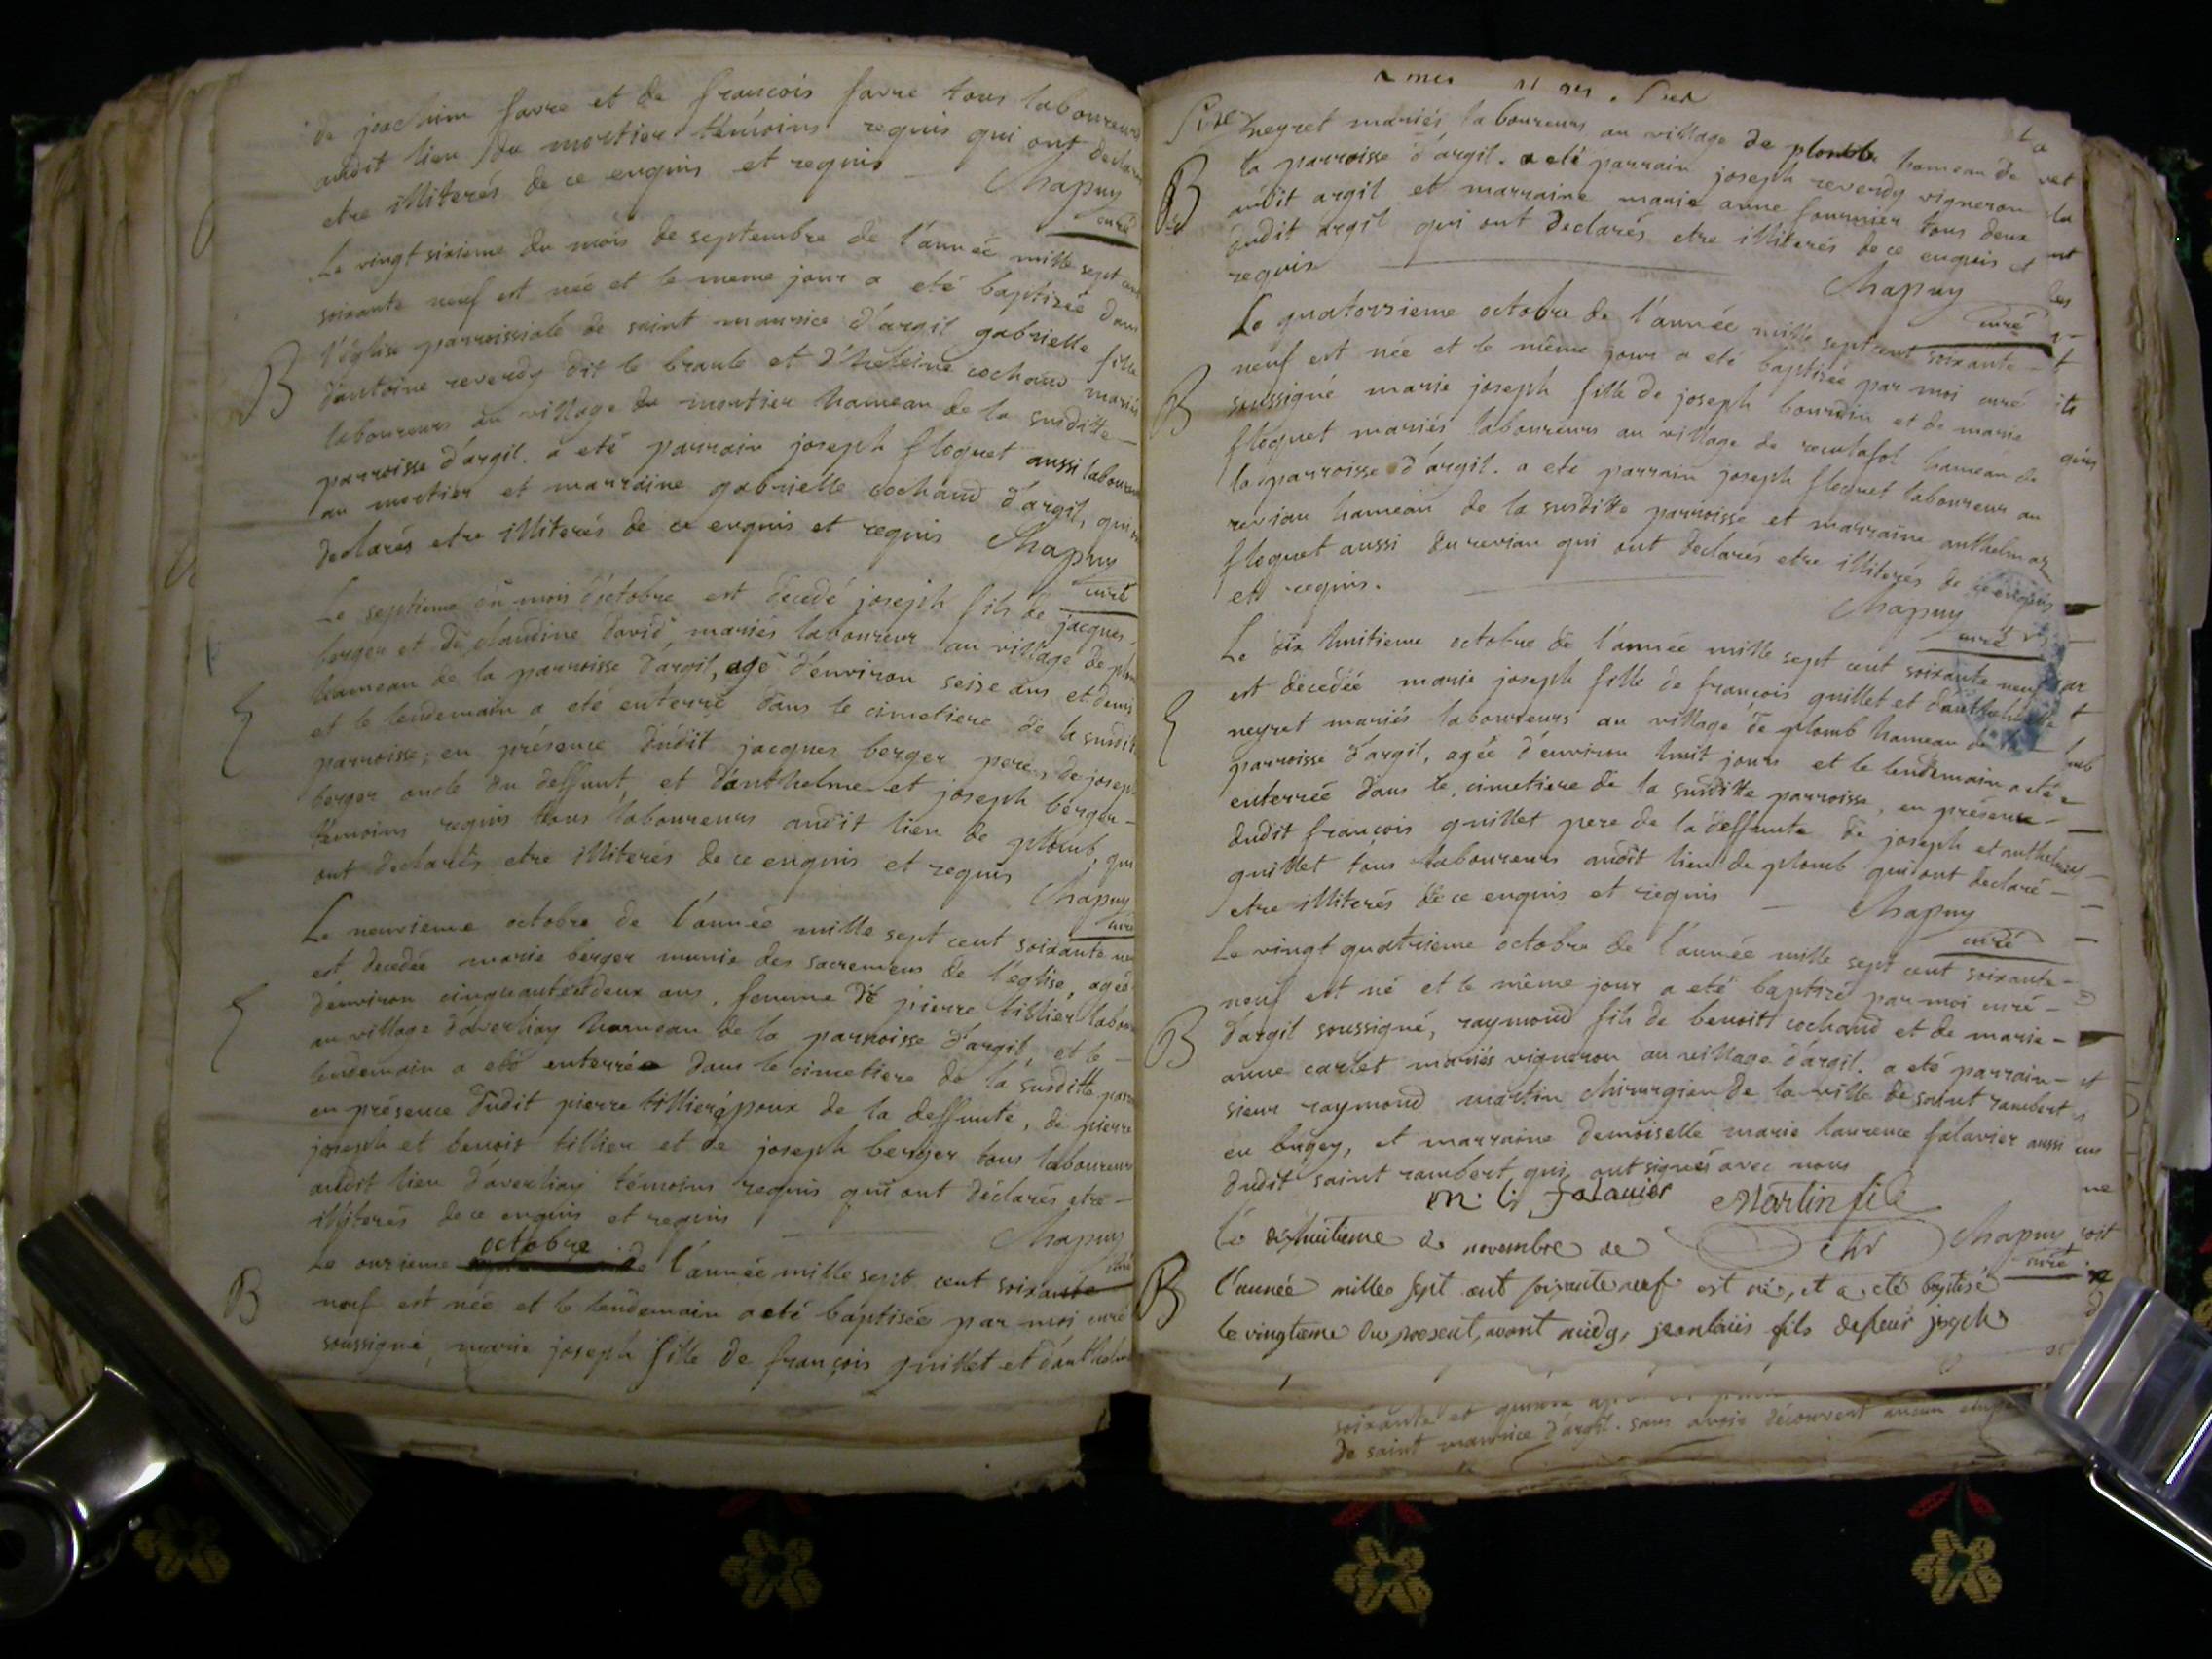 de joachim favre et de françois favre tous laboureurs
audit lieu du mortier témoins requis qui ont declarés
etre illiterés de ce enquis et requis Chapuy
curé
Le vingt sixieme du mois de septembre de l'année mille sept cent
soixante neuf est née et le meme jour a eté baptisée dans
l'église parroissiale de saint maurice d'argil gabrielle fille
B
d'antoine reverdy dit le branle et d'heleine cochand mariés
laboureurs au village du mortier hameau de la susditte
parroisse d'argil. a eté parrain joseph floquet aussi laboureur
au mortier et marraine gabrielle cochand d'argil, qui
declarés etre illiterés de ce enquis et requis Chapuy
curé
Le septieme du mois d'octobre est decedé joseph fils de jacques
berger et de claudine david, mariés laboureur au village de
hameau de la parroisse d'argil, agé d'environ seise ans et demi
et le lendemain a eté enterré dans le cimetiere de la susditte
parroisse, en présence dudit jacques berger pere, de joseph
berger oncle du deffunt, et d'anthelme et joseph berger
témoins requis tous laboureurs audit lieu de plomb, qui
ont declarés etre illiterés de ce enquis et requis
Chapuy
curé
Le neuvieme octobre de l'année mille sept cent soixante
est decedée marie berger munie des sacremens de l'église, agée
d'environ cinquante deux ans, femme de pierre tillier
au village d'averliay hameau de la parroisse d'argil, et le
lendemain a eté enterrée dans le cimetiere de la susditte
en présence dudit pierre tillier époux de la deffunte, de pierre
joseph et benoit tillier et de joseph berger tous laboureurs
audit lieu d'averliay témoins requis qui ont déclarés etre
illiterés de ce enquis et requis Chapuy
curé
octobre
Le onzieme de l'année mille sept cent soixante
B
neuf est née et le lendemain a eté baptisée par moi curé
soussigné, marie joseph fille de françois guillet et
neyret mariés laboureurs au village de plomb hameau de
la parroisse d'argil. a eté parrain joseph reverdy vigneron
B
audit argil et marraine marie anne fournier tous deux
dudit argil qui ont declarés etre illiterés de ce enquis et
requis
Chapuy
curé
Le quatorzieme octobre de l'année mille sept cent soixante
neuf est née et le même jour a eté baptisée par moi curé
B
soussigné marie joseph fille de joseph bourdin et de marie
floquet mariés laboureurs au village de hameau de
la parroisse d'argil. a eté parrain joseph floquet laboureur au
hameau de la susditte parroisse et marraine
floquet aussi qui ont declarés etre illiterés de ce enquis
et requis.
Chapuy
curé
Le dix huitieme octobre de l'année mille sept cent soixante neuf
est decedée marie joseph fille de françois guillet et
neyret mariés laboureurs au village de plomb hameau de la
parroisse d'argil, agée d'environ huit jours et le lendemain a eté
enterrée dans le cimetiere de la susditte parroisse, en présence
dudit françois guillet pere de la deffunte de joseph et
guillet tous laboureurs audit lieu de plomb qui ont declaré
etre illiterés de ce enquis et requis Chapuy
curé
Le vingt quatrieme octobre de l'année mille sept cent soixante
neuf est né et le même jour a eté baptizé par moi curé
B
d'argil soussigné, raymond fils de benoit cochand et de marie
anne carlet mariés vigneron au village d'argil. a eté parrain
sieur raymond martin chirurgien de la ville de saint rambert
en bugey, et marraine demoiselle marie laurence falavier aussi
dudit saint rambert, qui ont signés avec nous
Martin fils
Chapuy
curé
Le dixhuitieme de novembre de
B
l'année mille sept cent soixante neuf est né, et a eté baptisé
le vingtieme du present, avant midy, jean fils de joseph
soixante et
de saint maurice d'argil. sans avoir découvert aucun